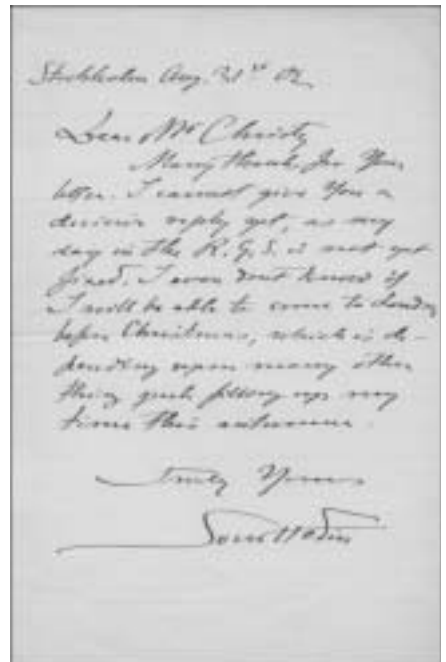 Stockholm Aug. 31st 02.
Dear Mr Christy
Many thanks for Your
letter. I cannot give You a
decisive reply yet, as my
day in the R.G.S. is not yet
fixed. I even dont know if
I will be able to come to London
before Christmas, which is de-
pending upon many other
things quite filling up my
time this autumn.
Truly Yours
Sven Hedin